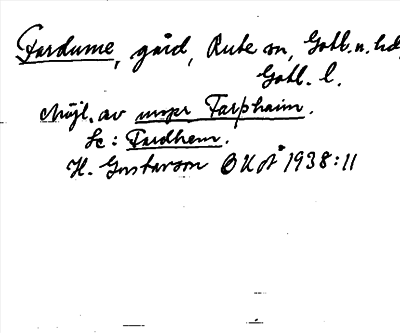 Fardume, gård, Rute sn, Gotl. n. hd,
Gotl. l.
Möjl. av unspr Farþhaim.
Se: Fardhem.
H. Gustavson OUÅ 1938:11